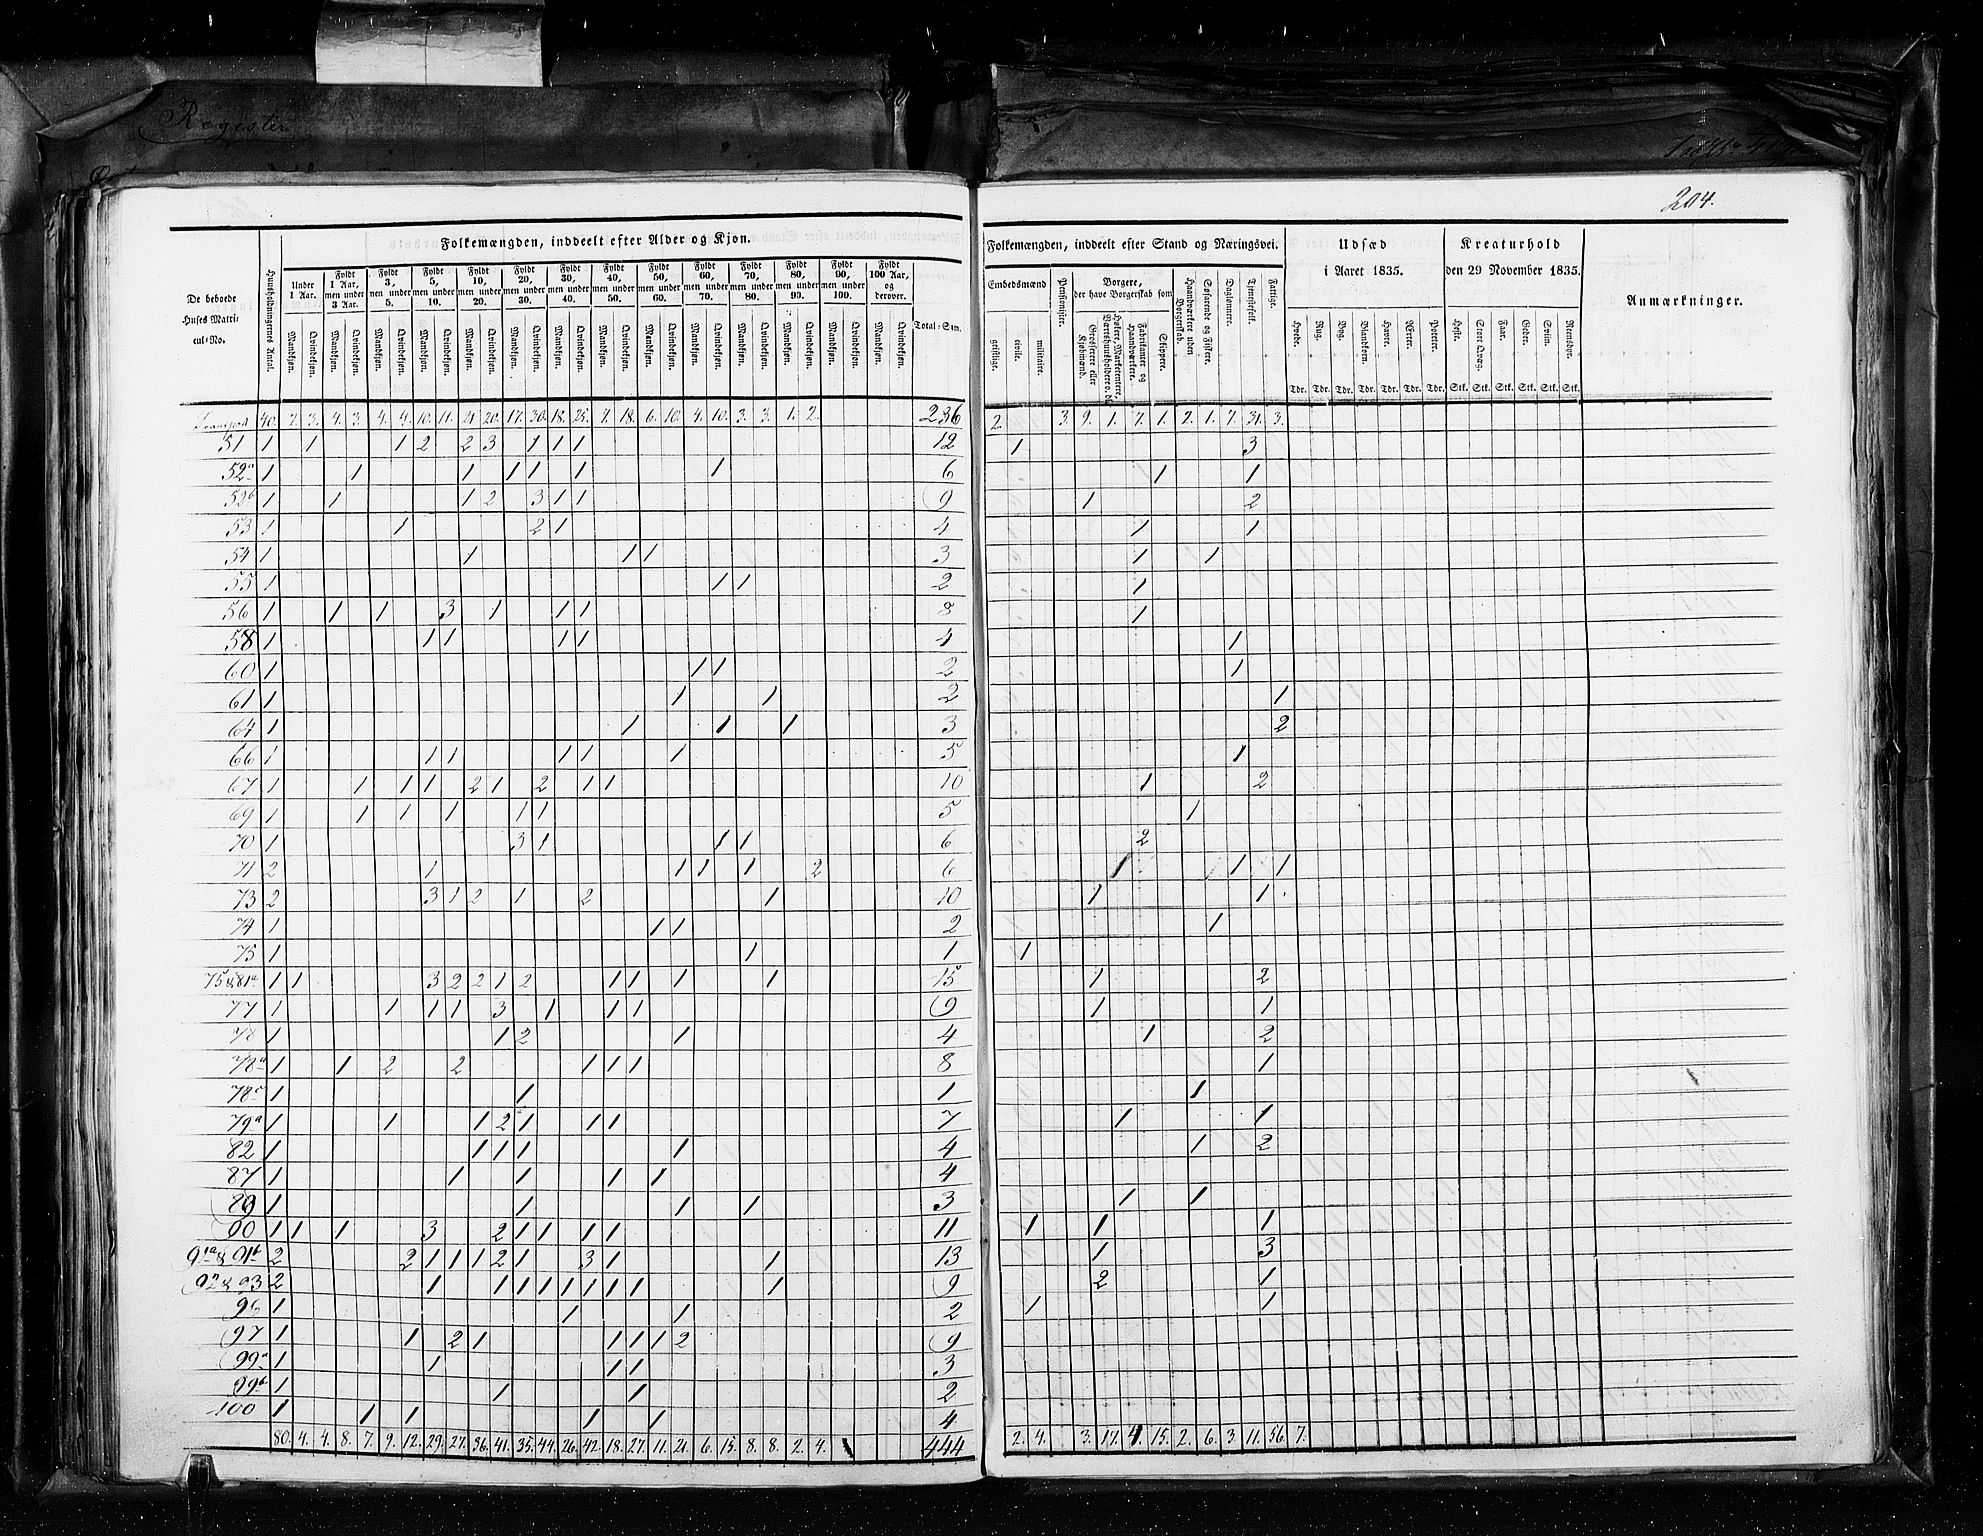 Register
204.
Folkemængden, inddeelt efter Alder og Kjøn.
De beboede Huses Matricul=No.
Huusholdningernes Antal.
Under 1 Aar.
Fyldt 1 Aar, men under 3 Aar.
Fyldt 3, men under 5.
Fyldt 5, men under 10.
Fyldt 10, men under 20.
Fyldt 20, men under 30.
Fyldt 30, men under 40.
Fyldt 40, men under 50.
Fyldt 50, men under 60.
Fyldt 60, men under 70.
Fyldt 70, men under 80.
Fyldt 80, men under 90.
Fyldt 90, men under 100.
Fyldt 100 Aar, og derover.
Mandkjøn. Qvindekjøn. Mandkjøn. Qvindekjøn. Mandkjøn. Qvindekjøn. Mandkjøn. Qvindekjøn. Mandkjøn. Qvindekjøn. Mandkjøn. Qvindekjøn. Mandkjøn. Qvindekjøn. Mandkjøn. Qvindekjøn. Mandkjøn. Qvindekjøn. Mandkjøn. Qvindekjøn. Mandkjøn. Qvindekjøn. Mandkjøn. Qvindekjøn. Mandkjøn. Qvindekjøn. Mandkjøn. Qvindekjøn.
Total=Sum.
Transport 40. 2. 3. 4. 3. 4. 4. 10. 11. 21. 20. 17. 30. 18. 25. 7. 18. 6. 10. 4. 10. 3. 3. 1. 2. 236
51 1 1 1 2 2 3 1 1 1 12
52a 1 1 1 1 1 1 1 6
52b 1 1 1 2 3 1 1 9
53 1 1 2 1 4
54 1 1 1 1 3
55 1 1 1 2
56 1 1 1 3 1 1 1 8
58 1 1 1 1 1 4
60 1 1 1 2
61 1 1 1 2
64 1 1 1 1 3
66 1 1 1 1 1 1 5
67 1 1 1 1 2 1 2 1 1 10
69 1 1 1 1 1 1 5
70 1 3 1 1 1 6
71 2 1 1 1 1 2 6
73 2 3 1 2 1 2 1 10
74 1 1 1 2
75 1 1 1
75 & 81a 1 1 3 2 2 1 2 1 1 1 1 15
77 1 1 1 1 3 1 1 1 9
78 1 1 2 1 4
78a 1 1 2 2 1 1 1 8
78c 1 1 1
79a 1 1 1 2 1 1 1 7
82 1 1 1 1 1 4
87 1 1 1 1 1 4
89 1 1 1 1 3
90 1 1 1 3 2 1 1 1 1 11
91a & 91b 2 2 1 1 1 2 1 3 1 1 13
92 & 93 2 1 1 1 1 1 1 1 1 1 9
96 1 1 1 2
97 1 1 2 1 1 1 1 2 9
99a 1 1 1 1 3
99b 1 1 1 2
100 1 1 1 1 1 4
80. 4. 4. 8. 7. 9. 12. 29. 27. 36. 41. 35. 44. 26. 42. 18. 27. 11. 21. 6. 15. 8. 8. 2. 4. 444
Folkemængden, inddeelt efter Stand og Næringsvei.
Embedsmænd
geistlige. civile. militaire.
Pensionister.
Borgere, der have Borgerskab som
Grosserere eller Kjøbmænd.
Fabrikanter og Haandværkere.
Skippere.
Haandværkere uden Borgerskab.
Søfarende og Fiskere.
Daglønnere.
Tjenestefolk.
Fattige.
Udsæd i Aaret 1835.
Hvede. Rug. Byg. Blandkorn. Havre. Ærter. Poteter.
Tdr. Tdr. Tdr. Tdr. Tdr. Tdr. Tdr.
Kreaturhold den 29 November 1835.
Heste. Stort Qvæg. Faar. Geder. Sviin. Reensdyr.
Stk. Stk. Stk. Stk. Stk. Stk.
Anmærkninger.
2. 3. 9. 1. 7. 1. 2. 1. 7. 31. 3.
1 3
1 1
1 2
1 1
1 1
1
1
1
1
1
2
1
1 2
1
2
1 1 1
1 1
1
1
1 2
1 1
1 2
1
1
1 1
1 2
1 1
1 1 1
1 3
2 1
1 1
2. 4. 3. 17. 4. 15. 2. 6. 3. 11. 56. 7.